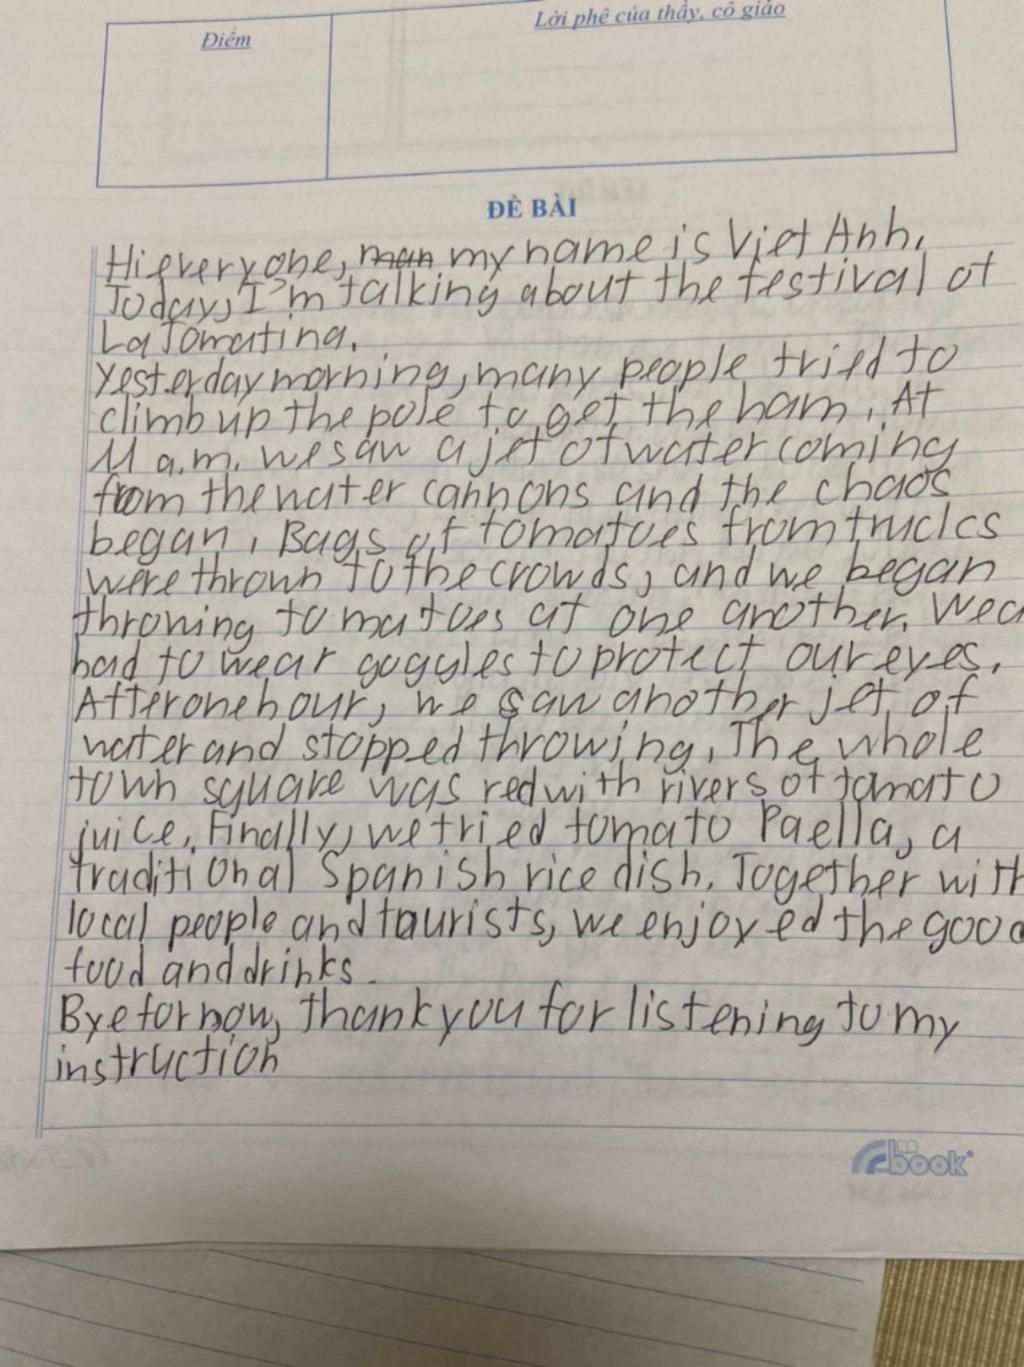 Điểm
Lời phê của thầy, cô giáo
ĐỀ BÀI
Hi everyone, man my name is Việt Anh.
Today, I'm talking about the festival of
La Tomatina.
Yesterday morning, many people tried to
climb up the pole to get the ham. At
11 a.m. we saw a jet of water coming
from the water cannons and the chaos
began. Bags of tomatoes from trucks
were thrown to the crowds, and we began
throwing tomatoes at one another. We a
had to wear goggles to protect our eyes.
After one hour, we saw another jet of
water and stopped throwing. The whole
town square was red with rivers of tomato
juice. Finally, we tried tomato Paella, a
traditional Spanish rice dish. Together with
local people and tourists, we enjoyed the good
food and drinks.
Bye for now, thank you for listening to my
instruction
book